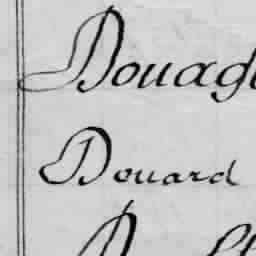 Douag
Douard